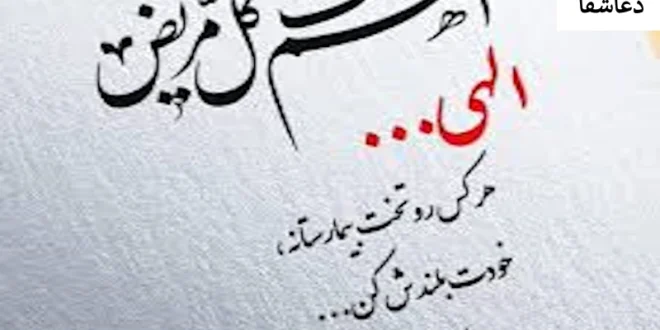 دعاشفا
کل مریض
الهی...
هر کس رو تخت بیمارستانه،
خودت بلندش کن...